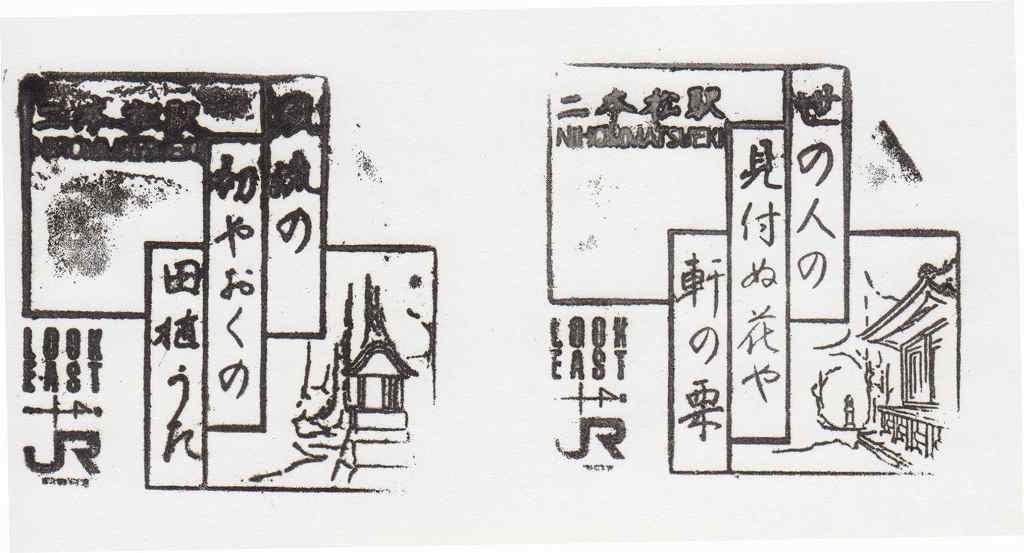 二本松駅
NIHONMATSU EKI
風流の
初やおくの
田植うた
LOOK
EAST
JR
二本松駅
NIHONMATSU EKI
世の人の
見付ぬ花や
軒の栗
LOOK
EAST
JR